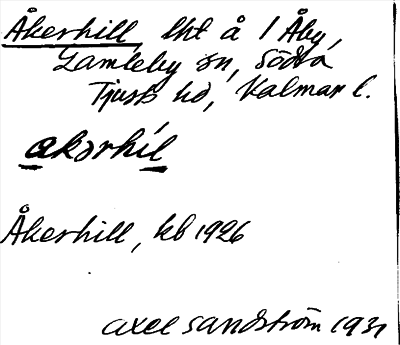 Åkerhill, lht å 1 Åby,
Gamleby sn, Södra
Tjusts hd, Kalmar l.
akərhíl
Åkerhill, kb 1926
Axel Sandström 1931